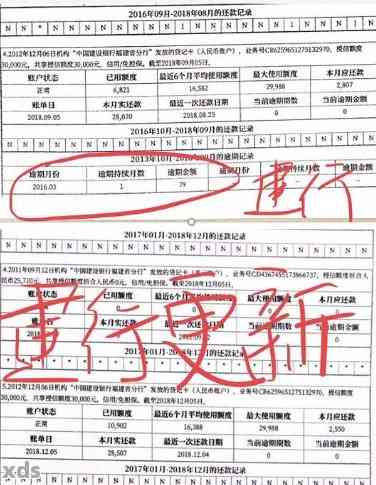 2016年09月-2018年08月的还款记录
N N N N N N N N N N N N N N N N N * N N N 1 N N
4.2012年12月06日机构“中国建设银行福建省分行”发放的贷记卡(人民币账户),业务号CB6259651275132970,授信额度
30,000元,共享授信额度30,000元,信用/免担保。截至2018年09月05日,
账户状态 已用额度 最近6个月平均使用额度 最大使用额度 本月应还款
正常 6,821 16,582 29,988 2,807
账单日 本月实还款 最近一次还款日期 当前逾期期数 当前逾期金额
2018.09.05 28,670 2018.08.25 0 0
2016年10月-2018年09月的还款记录
N N N N N N N N N N N N N N N N N N N N N N N N
2013年10月-2018年09月的逾期记录
逾期月份 逾期持续月数 逾期金额 逾期月份 逾期持续月数 逾期金额
2016.03 1 79
建行
2017年01月-2018年12月的还款记录
N N N N N N N N N N N N N N N N N N N N N N N N
建行更新
2017年01月-2018年12月的还款记录
5.2012年12月06日机构“中国建设银行福建省分行”发放的贷记卡(人民币账户),业务号CB6259651275132970,授信额度
30,000元,共享授信额度30,000元,信用/免担保。截至2018年12月05日,
账户状态 已用额度 最近6个月平均使用额度 最大使用额度 本月应还款
正常 10,902 16,388 29,988 2,550
账单日 本月实还款 最近一次还款日期 当前逾期期数 当前逾期金额
2018.12.05 28,507 2018.12.04 0 0
2017年01月-2018年12月的还款记录
N N N N N N N N N N N N N N N N N N N N N N N N
xds